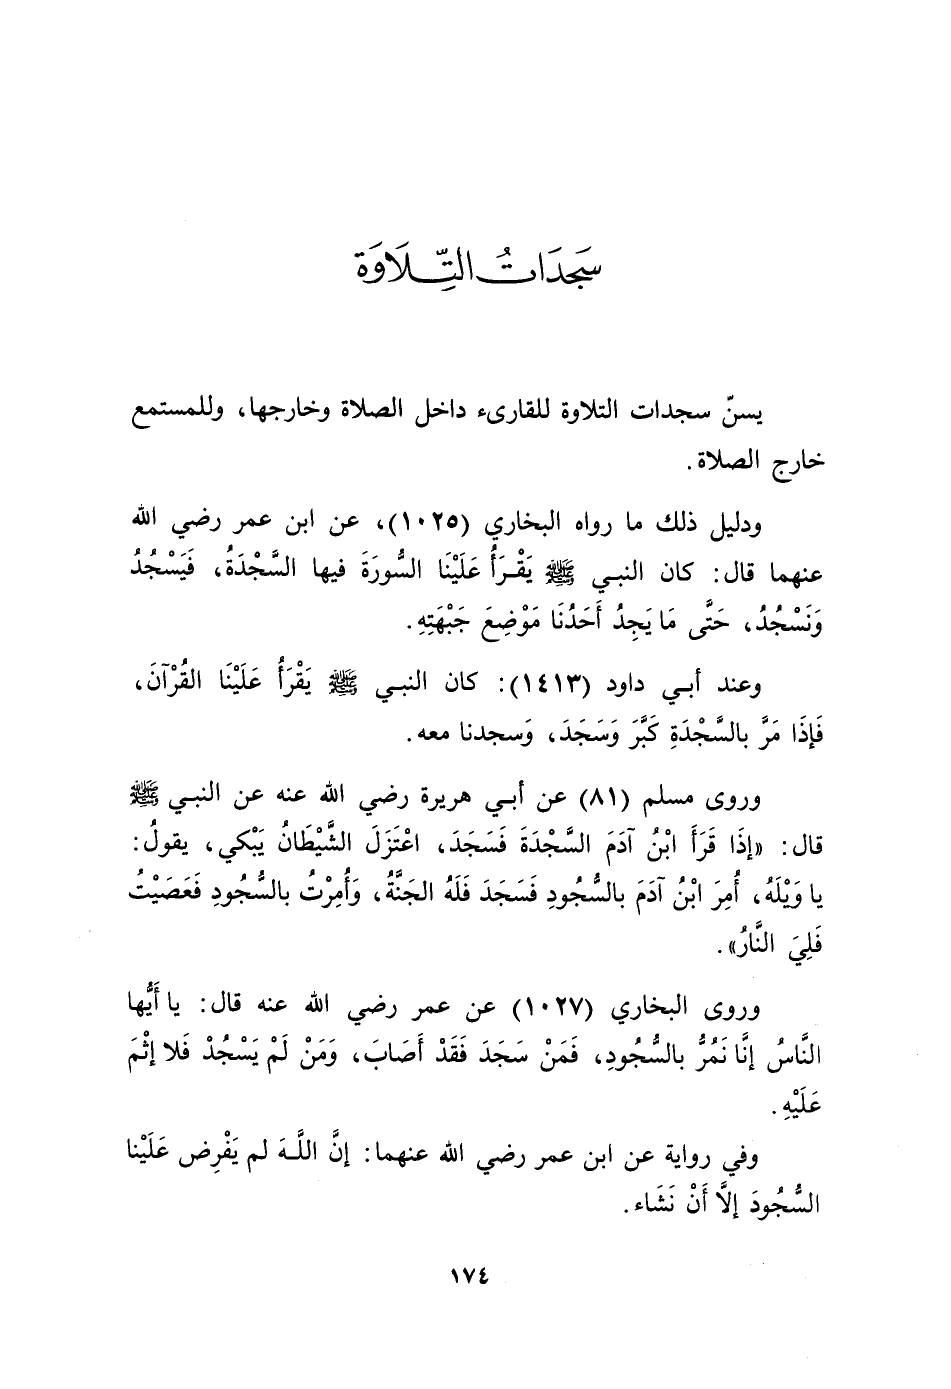 سَجَدَاتُ التِّلَاوَة
يسنّ سجدات التلاوة للقارىء داخل الصلاة وخارجها، وللمستمع
خارج الصلاة.
ودليل ذلك ما رواه البخاري (١٠٢٥)، عن ابن عمر رضي الله
عنهما قال: كان النبي ﷺ يَقْرَأُ عَلَيْنَا السُّورَةَ فيها السَّجْدَةُ، فَيَسْجُدُ
وَنَسْجُدُ، حَتَّى مَا يَجِدُ أَحَدُنَا مَوْضِعَ جَبْهَتِهِ.
وعند أبي داود (١٤١٣): كان النبي ﷺ يَقْرَأُ عَلَيْنَا القُرْآنَ،
فَإذَا مَرَّ بالسَّجْدَةِ كَبَّرَ وَسَجَدَ، وَسجدنا معه.
وروى مسلم (٨١) عن أبي هريرة رضي الله عنه عن النبي ﷺ
قال: «إذَا قَرَأَ ابْنُ آدَمَ السَّجْدَةَ فَسَجَدَ، اعْتَزَلَ الشَّيْطَانُ يَبْكي، يقولُ:
يا وَيْلَهُ، أُمِرَ ابْنُ آدَمَ بالسُّجُودِ فَسَجَدَ فَلَهُ الجَنَّةُ، وَأُمِرْتُ بالسُّجُودِ فَعَصَيْتُ
فَلِيَ النَّارُ».
وروى البخاري (١٠٢٧) عن عمر رضي الله عنه قال: يا أَيُّها
النَّاسُ إنَّا نَمُرُّ بالسُّجُودِ، فَمَنْ سَجَدَ فَقَدْ أَصَابَ، وَمَنْ لَمْ يَسْجُدْ فَلا إثْمَ
عَلَيْهِ.
وفي رواية عن ابن عمر رضي الله عنهما: إنَّ اللَّهَ لم يَفْرِض عَلَيْنا
السُّجُودَ إلاَّ أَنْ نَشَاء.
١٧٤